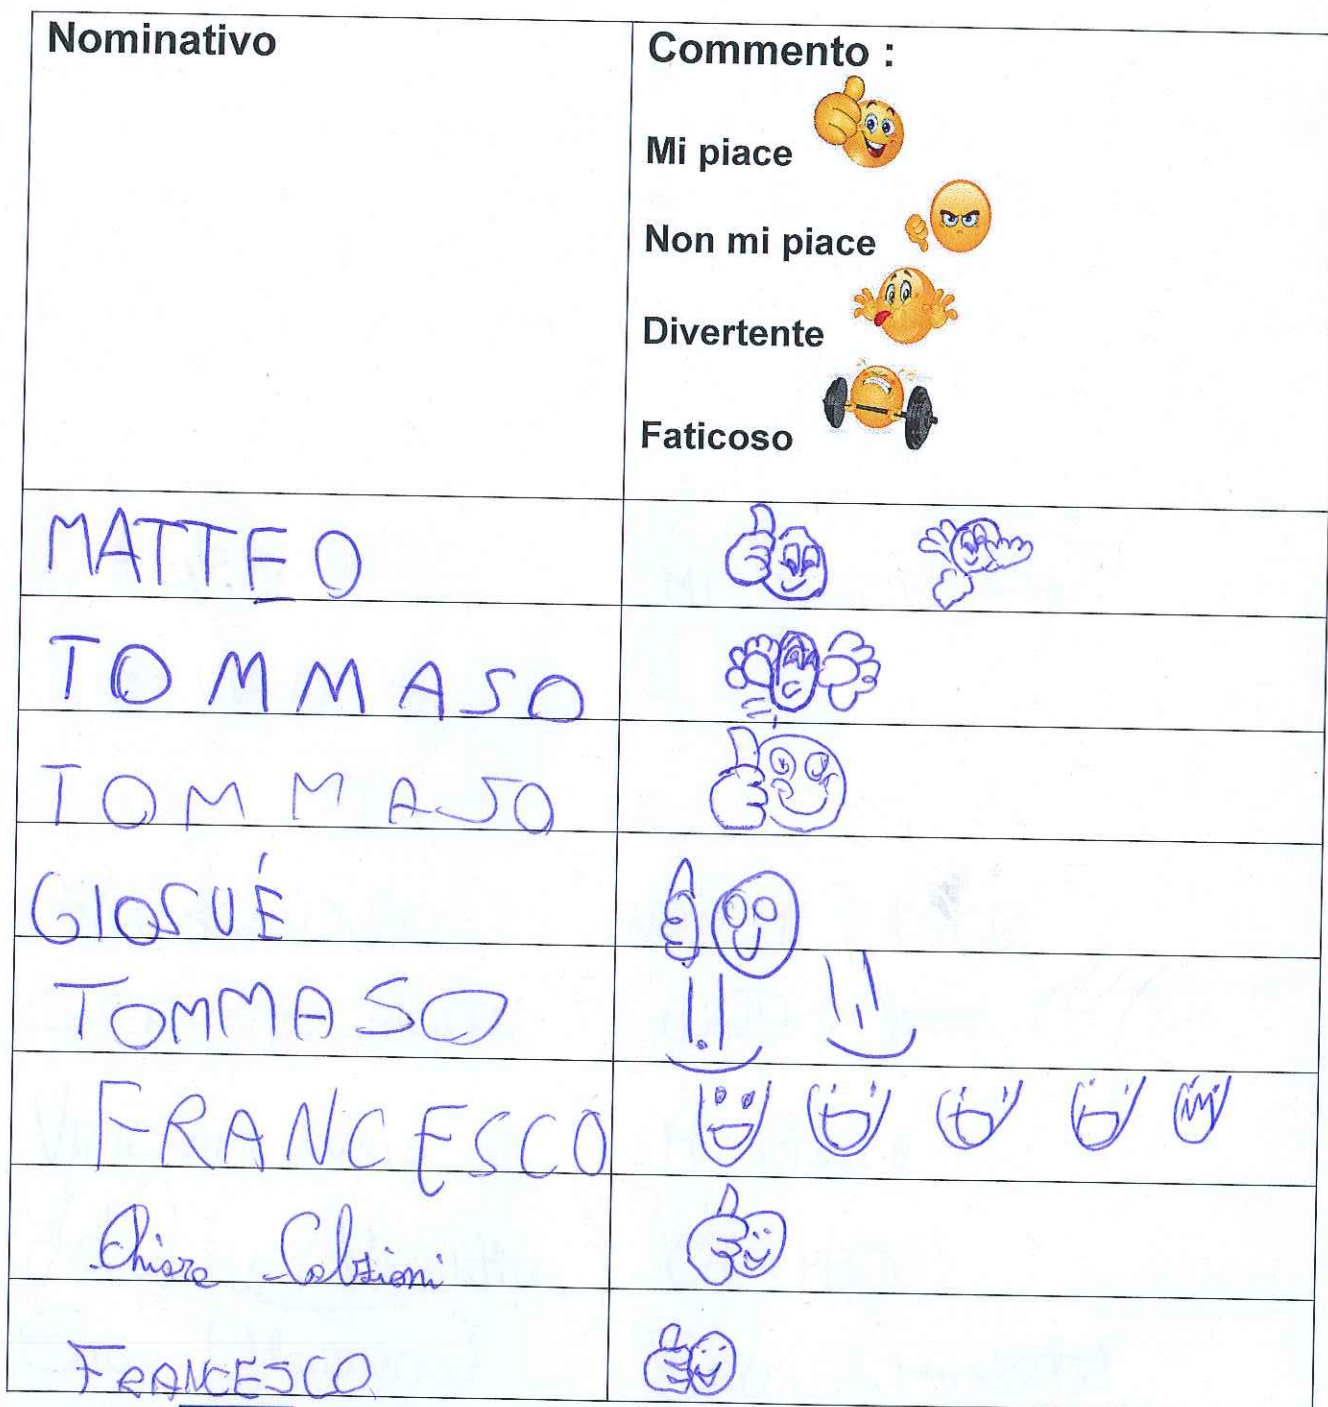 Nominativo
Commento :
Mi piace
Non mi piace
Divertente
Faticoso
MATTEO
TOMMASO
TOMMASO
GIOSUÉ
TOMMASO
FRANCESCO
Chiara Calzioni
FRANCESCO